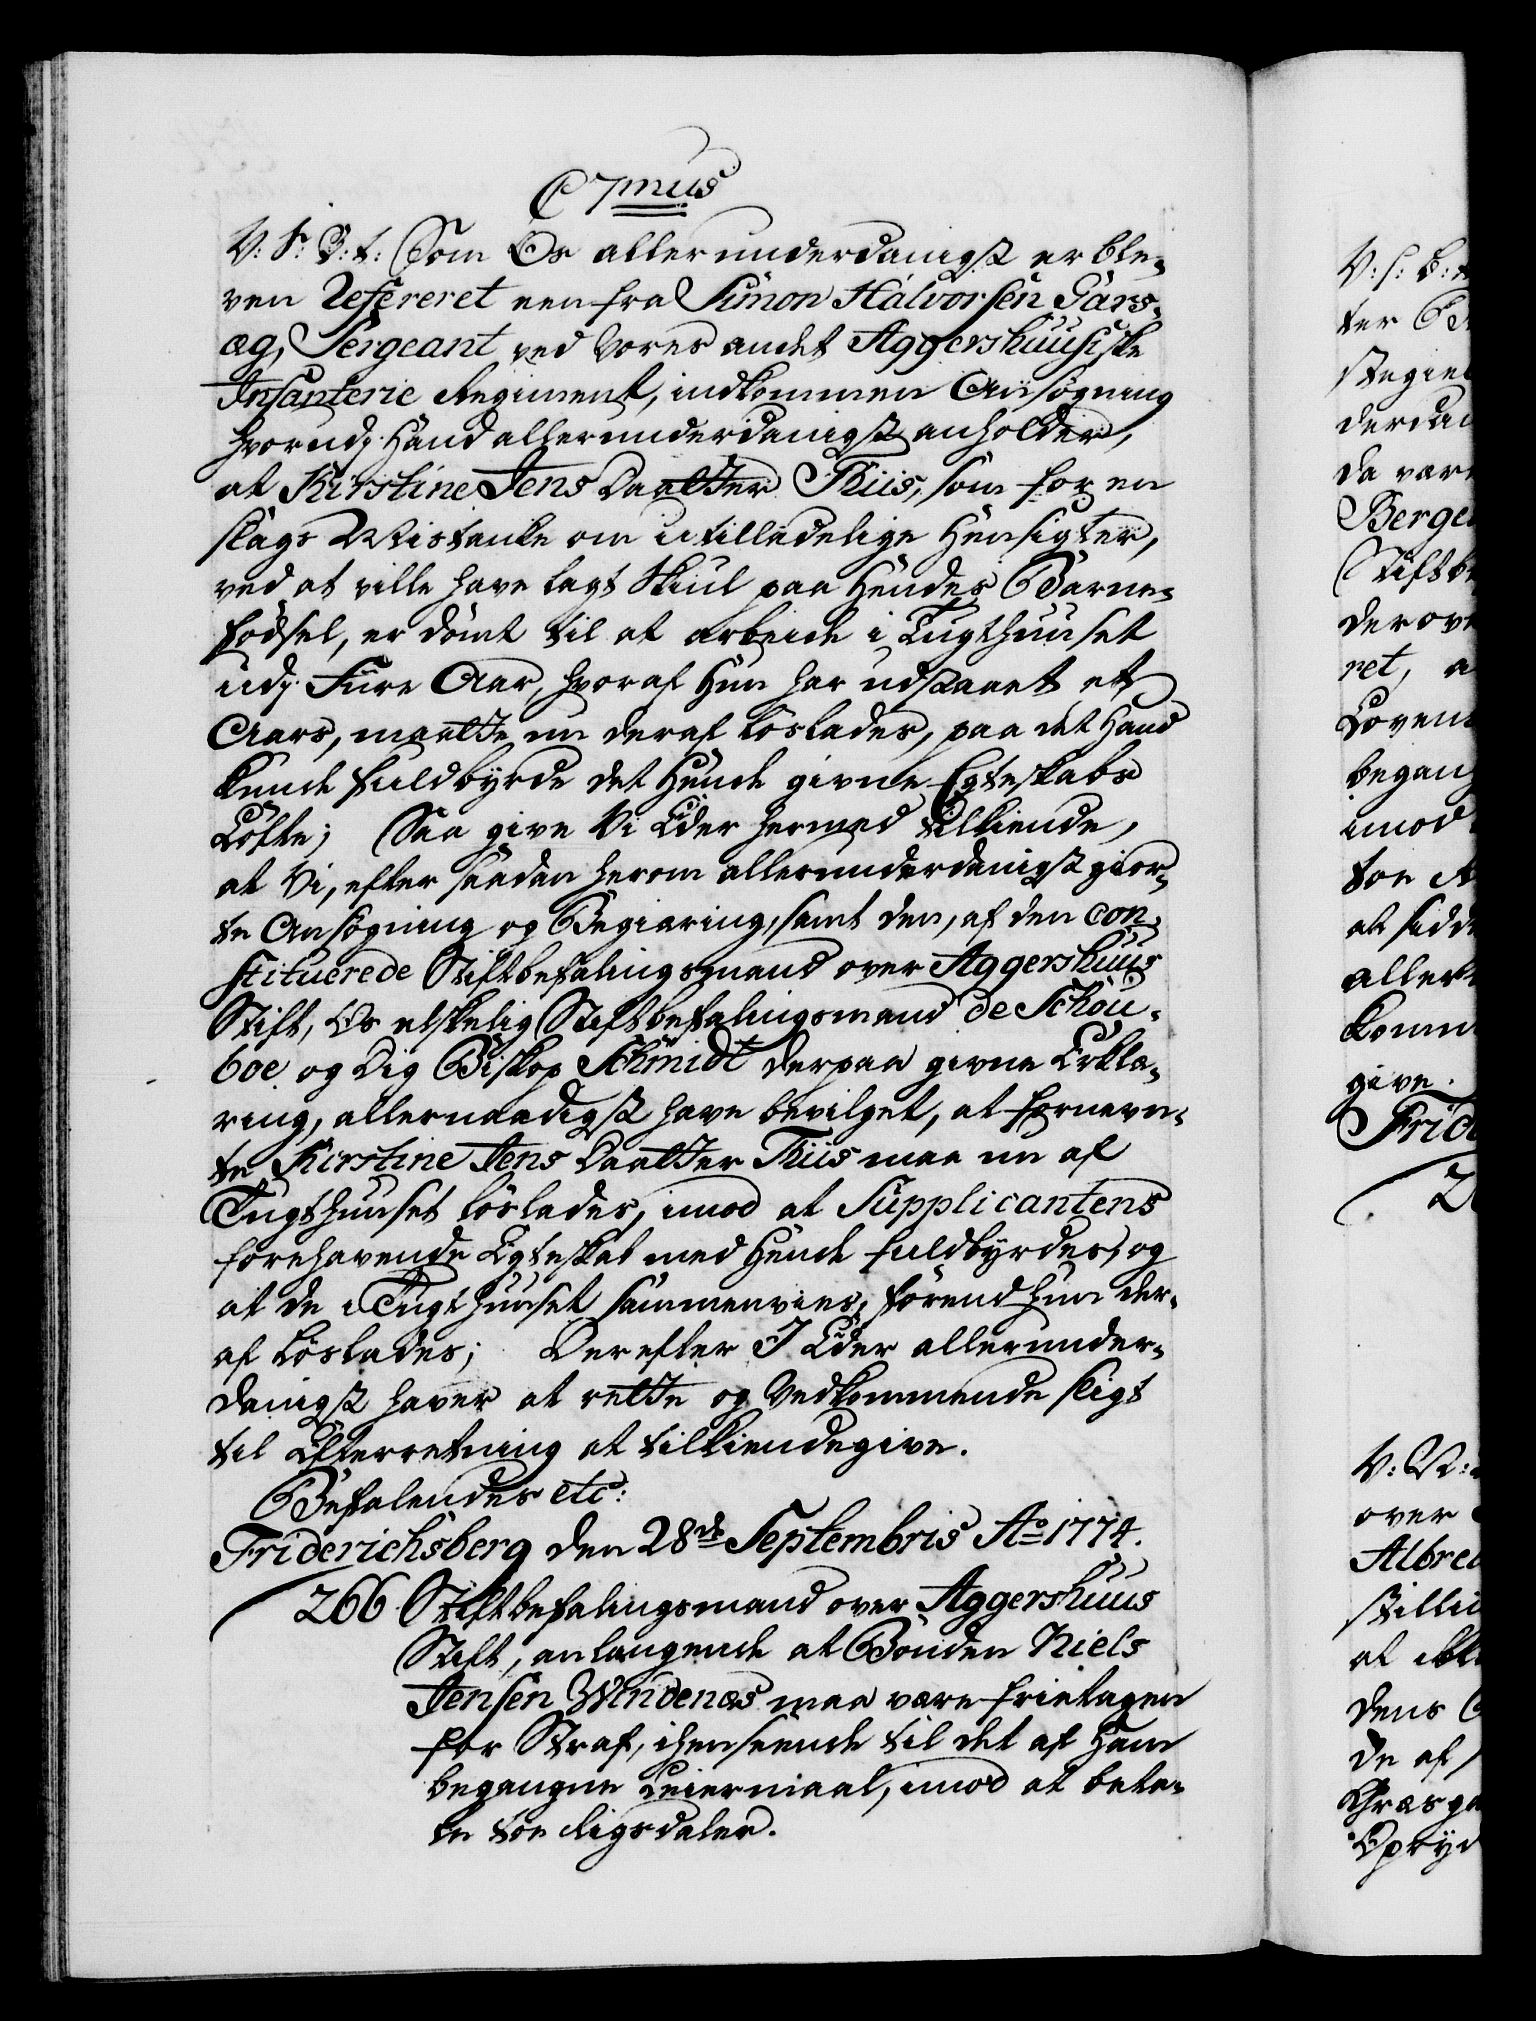 C7mus
V: S: B: t: Som Os allerunderdanigst er ble-
ven Refereret een fra Simon Halvorsen Gars-
æg, Sergeant ved Vores andet Aggershuusiske
Infanterie Regiment, indkommen Ansøgning
hvorudj Hand allerunderdanigst anholder,
at Kirstine Jens Daatter Thiis, som for en
slags Mistanke om utilladelige Hensigter,
ved at ville have lagt Skiul paa Hendes Barne-
fødsel, er dømt til at arbeide i Tugthuuset
udj Fiire Aar, hvoraf Hun har udstaaet et
Aars, maatte nu deraf løslades, paa det Hand
kunde fuldbyrde det Hende givne Egteskabs
Løfte; Saa give Vi Eder hermed tilkiende,
at Vi, efter saadan herom allerunderdanigst gior-
te Ansøgning og Begiæring, samt den, af den con-
stituerede Stiftbefalingsmand over Aggershuus
Stift, Os elskelig Stiftbefalingsmand de Schou-
boe og Dig Biskop Schmidt derpaa givne Erklæ-
ring, allernaadigst have bevilget, at fornævn-
te Kirstine Jens Daatter Thiis maa nu af
Tugthuuset løslades, imod at Supplicantens
forehavende Egteskab med Hende fuldbyrdes, og
at de i Tugthuuset sammenvies, førend hun der-
af løslades; Derefter I Eder allerunder-
danigst haver at rette og Vedkommende sligt
til Efterretning at tilkiendegive.
Befalendes etc:
Friderichsberg den 28de Septembris Ao 1774.
266 Stiftbefalingsmand over Aggershuus
Stift, anlangende at Bonden Niels
Jensen Windenæs maa være frietagen
for Straf, i henseende til det af Ham
begangne Leiermaal, imod at beta-
le toe Rigsdaler.